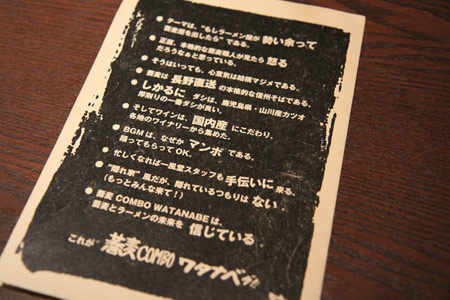 ● テーマは、“もしラーメン屋が 勢い余って
蕎麦屋を出したら”である。
● 正直、本格的な蕎麦職人が見たら 怒る
だろうなぁと思っている。
● そうはいっても、心意気は結構マジメである。
● 蕎麦は 長野直送 の本格的な信州そばである。
● しかるに ダシは、鹿児島県・山川産カツオ
厚削りの一番ダシが良い。
● そしてワインは、国内産 にこだわり、
各地のワイナリーから集めた。
● BGMは、なぜか マンボ である。
踊ってもらってOK。
● 忙しくなれば一風堂スタッフも 手伝いに 来る。
● “隠れ家”風だが、隠れているつもりは ない
(もっとみんな来て!)
● 蕎麦 COMBO WATANABE は、
蕎麦とラーメンの未来を 信じている
これが 蕎麦COMBO ワタナベだ!!